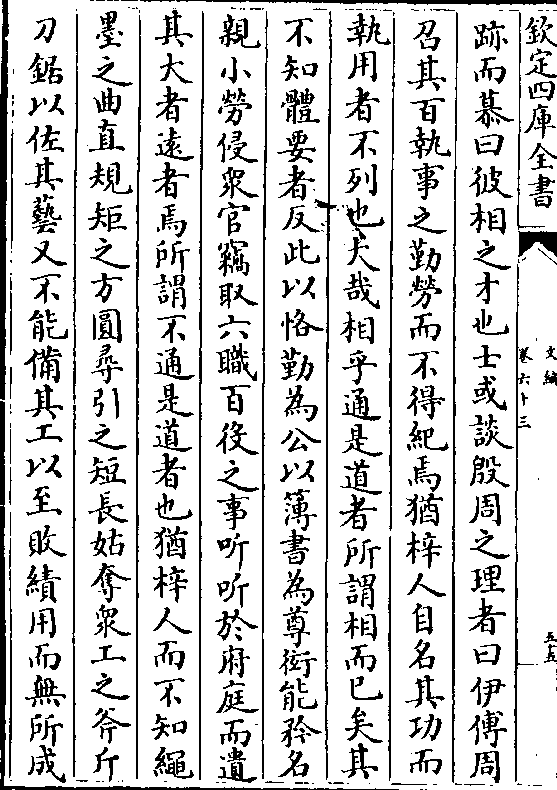 欽定四庫全書
文編
卷六十三
五五
跡而慕曰彼相之才也士或談殷周之理者曰伊傅周
召其百執事之勤勞而不得紀焉猶梓人自名其功而
執用者不列也大哉相乎通是道者所謂相而已矣其
不知體要者反此以恪勤為公以簿書為尊衒能矜名
親小勞侵衆官竊取六職百役之事听听於府庭而遺
其大者遠者焉所謂不通是道者也猶梓人而不知繩
墨之曲直規矩之方圓尋引之短長姑奪衆工之斧斤
刀鋸以佐其藝又不能備其工以至敗績用而無所成